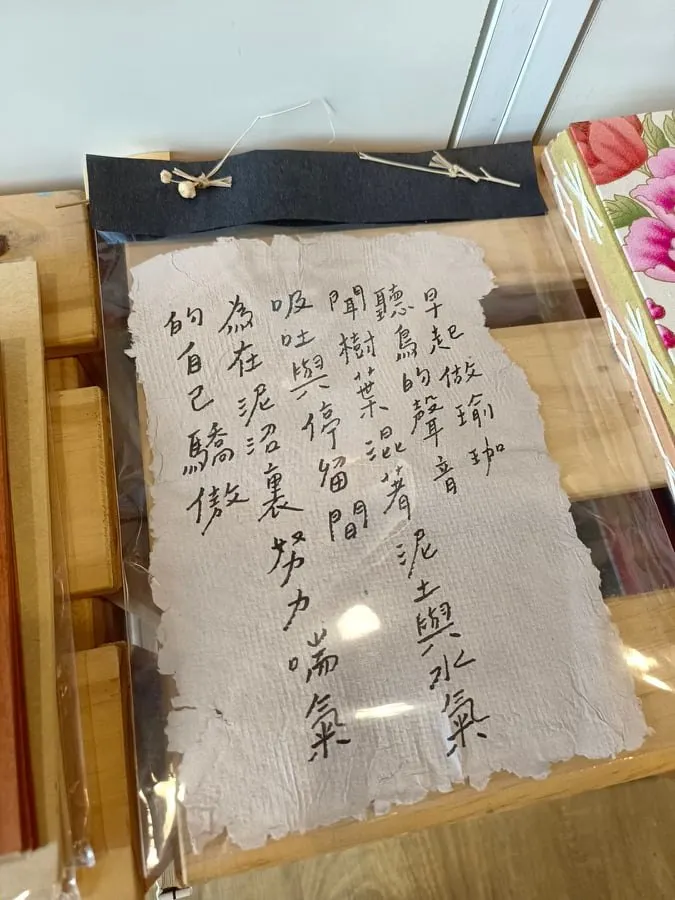 早起做瑜珈
聽鳥的聲音
聞樹葉混著泥土與水氣
吸吐與停留間
為在泥沼裏努力喘氣
的自己驕傲